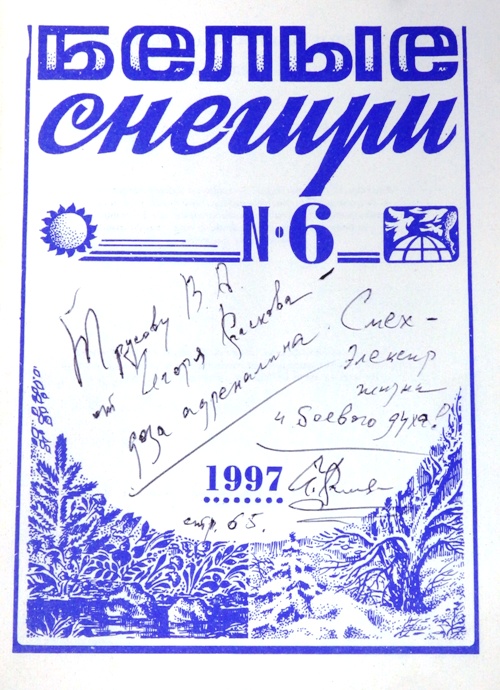 Белые
снегири
N·6
Трусову В. А.
от Игоря
доза адреналина.
Смех -
Элексир
жизни
и боевого духа!
1997
стр. 65.